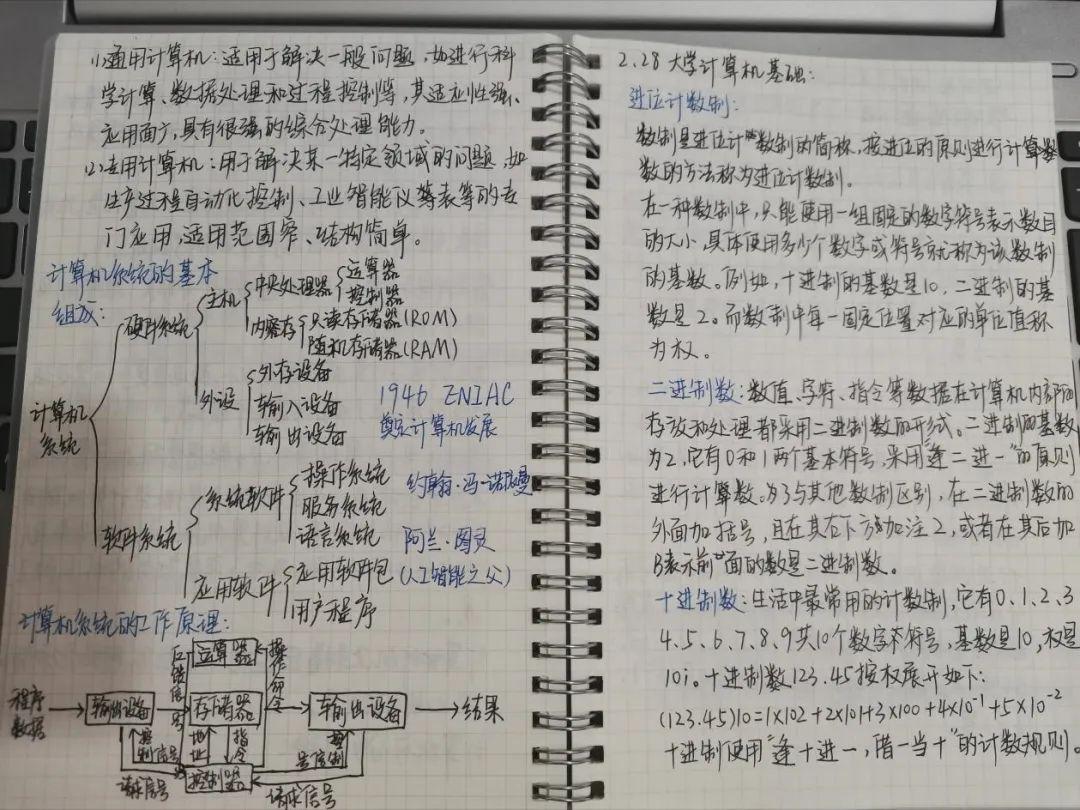 (1)通用计算机：适用于解决一般问题，如进行科
学计算、数据处理和过程控制等，其适应性强、
应用面广，具有很强的综合处理能力。
(2)专用计算机：用于解决某一特定领域的问题，如
生产过程自动化控制、工业智能仪等表等的专
门应用，适用范围窄、结构简单。
计算机系统的基本
组成：
计算机
系统
硬件系统
主机
中央处理器
运算器
控制器
内存
只读存储器(ROM)
随机存储器(RAM)
外设
外存设备
输入设备
输出设备
1946 ENIAC
奠定计算机发展
软件系统
系统软件
操作系统
服务系统
语言系统
约翰·冯·诺依曼
阿兰·图灵
(人工智能之父)
应用软件
应用软件包
用户程序
计算机系统的工作原理：
程序
数据
输出设备
反馈信号
运算器
操作命令
存储器
输出设备
结果
控制信号
地址
指令
控制信号
控制器
请求信号
请求信号
2.28 大学计算机基础：
进位计数制：
数制是进位计数制的简称，按进位的原则进行计算
数的方法称为进位计数制。
在一种数制中，只能使用一组固定的数字符号表示数目
的大小，具体使用多少个数字或符号就称为该数制
的基数。例如，十进制的基数是10，二进制的基
数是2。而数制中每一固定位置对应的单位值称
为权。
二进制数：数值、字符、指令等数据在计算机内部的
存放和处理都采用二进制数的形式。二进制的基数
为2，它有0和1两个基本符号，采用“逢二进一”的原则
进行计算数。为了与其他数制区别，在二进制数的
外面加括号，且在其右下方加注2，或者在其后加
B表示前面的数是二进制数。
十进制数：生活中最常用的计数制，它有0、1、2、3
4、5、6、7、8、9共10个数字符号，基数是10，权是
10i。十进制数123.45按权展开如下：
(123.45)10=1×102+2×101+3×100+4×10⁻¹+5×10⁻²
十进制使用“逢十进一，借一当十”的计数规则。